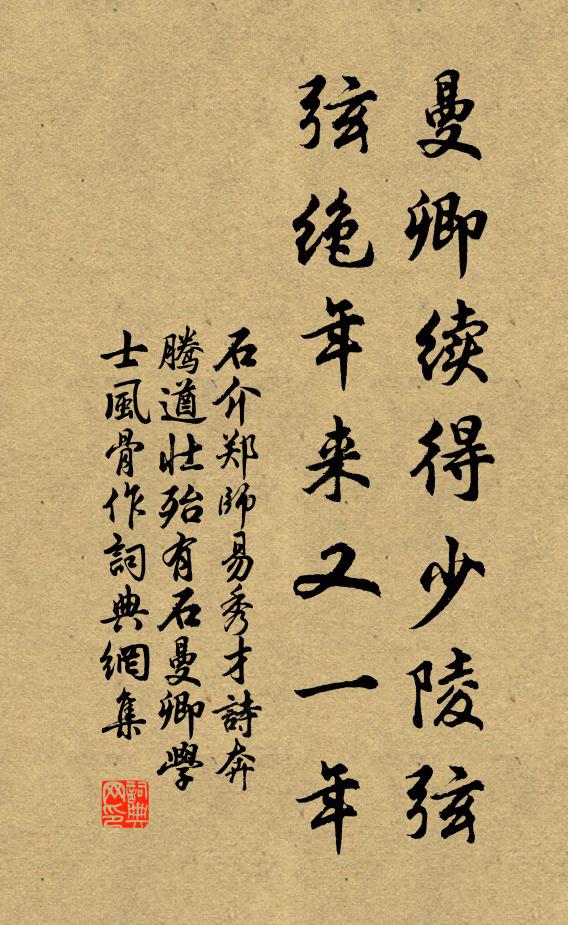 曼卿续得少陵弦
弦绝年来又一年
石介郑师易秀才詩奔
騰遒壮殆有石曼卿學
士風骨作詞典網集
詞典
网印